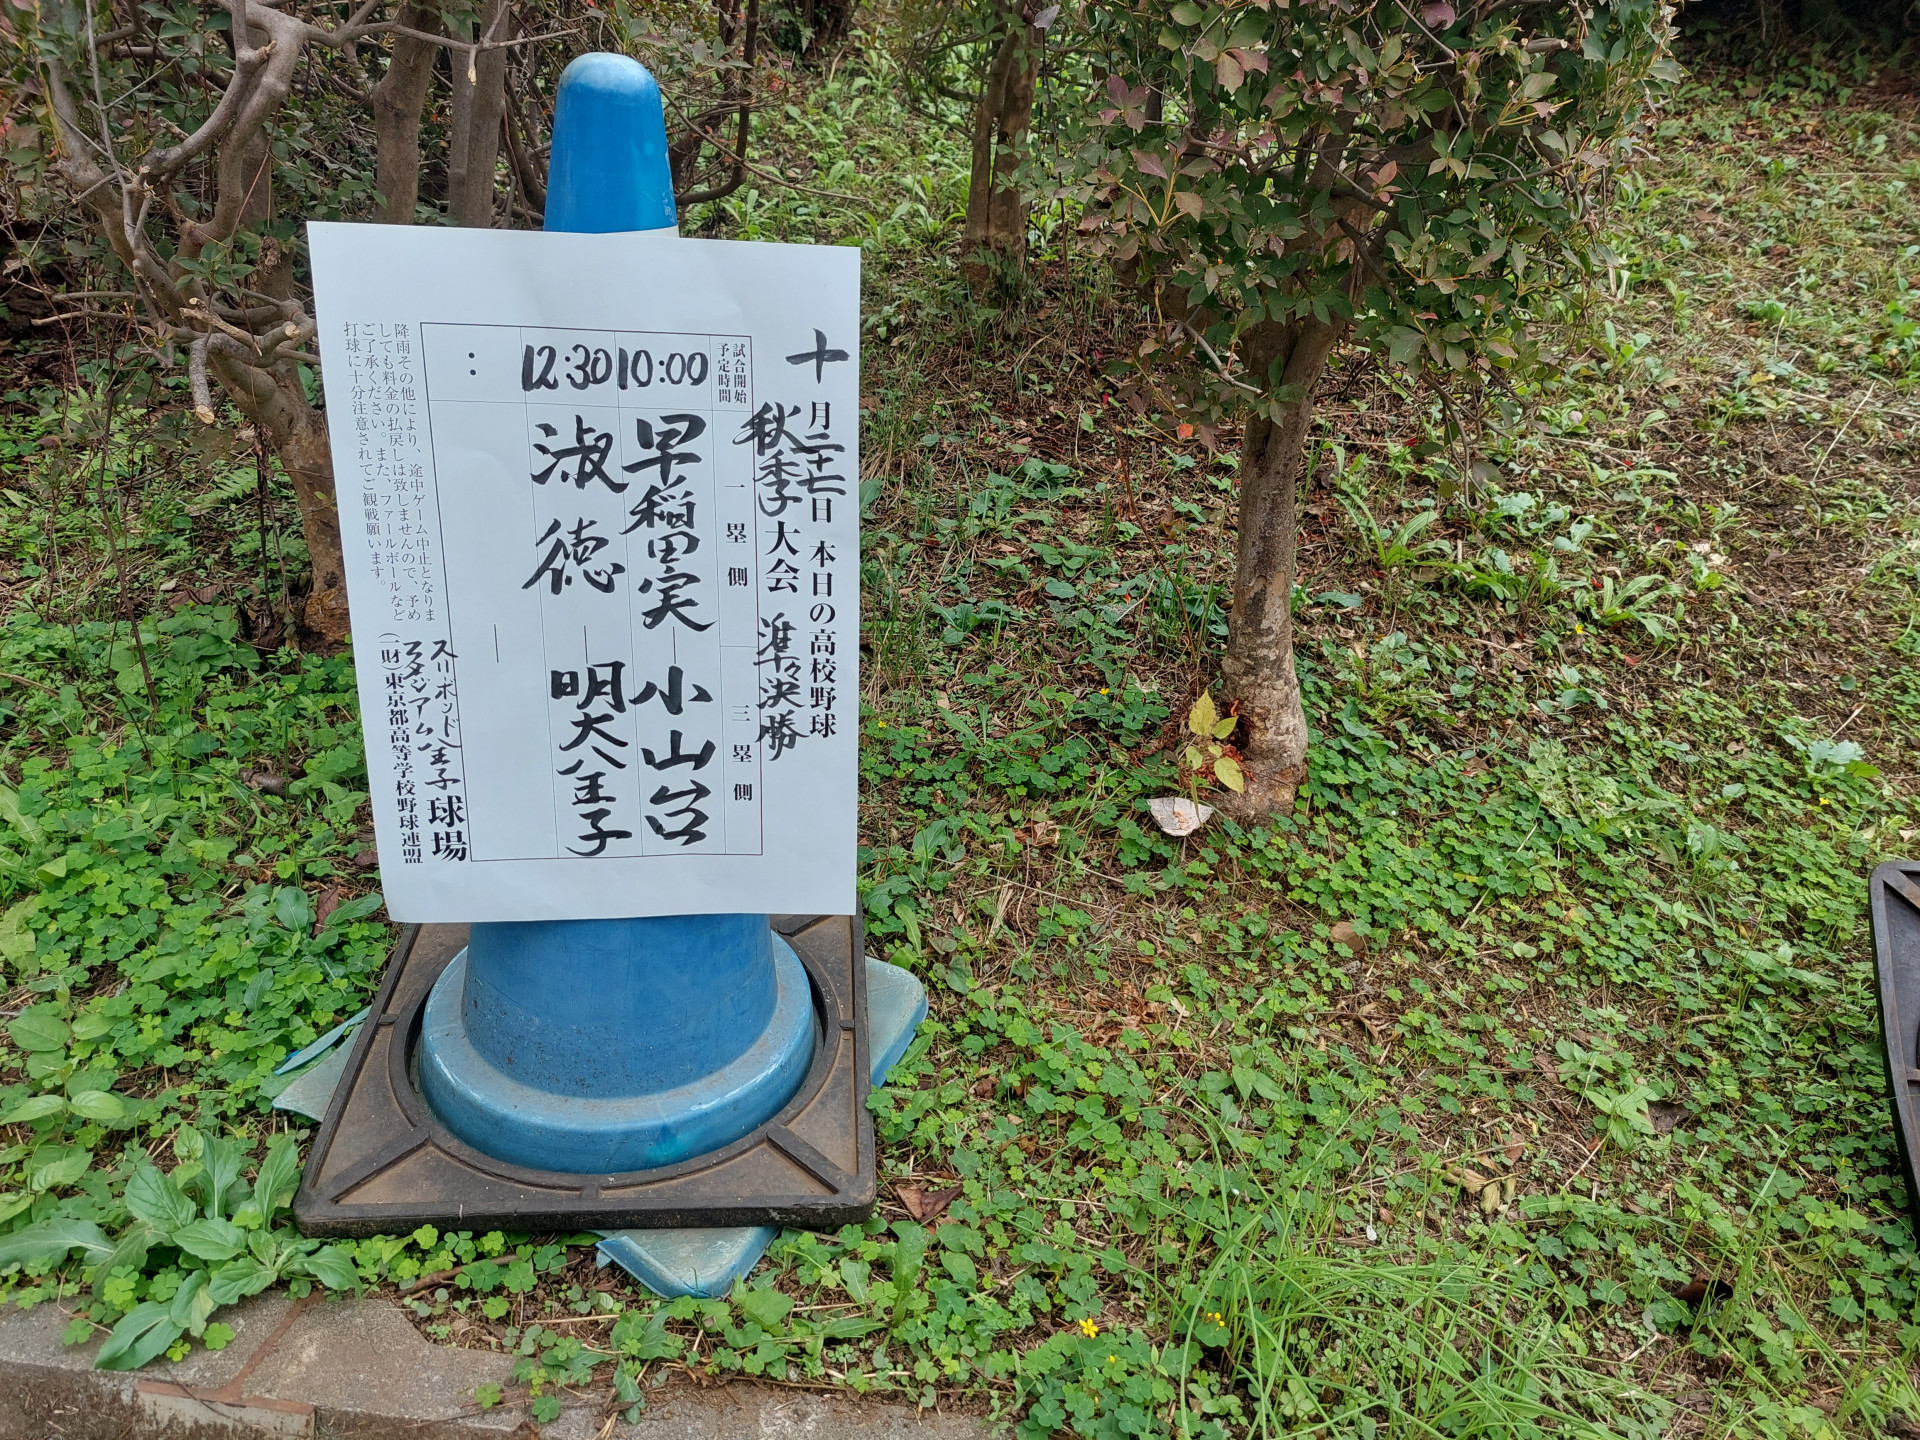 十月二十七日 本日の高校野球
秋季大会 準々決勝
試合開始予定時間
一塁側
三塁側
10:00 早稲田実―小山台
12:30 淑徳―明大八王子
: ―
スリーボンドスタジアム八王子球場
降雨その他により、途中ゲーム中止となりま
しても料金の払戻しは致しませんので、予め
ご了承ください。また、ファールボールなど
打球に十分注意されてご観戦願います。
(一財)東京都高等学校野球連盟